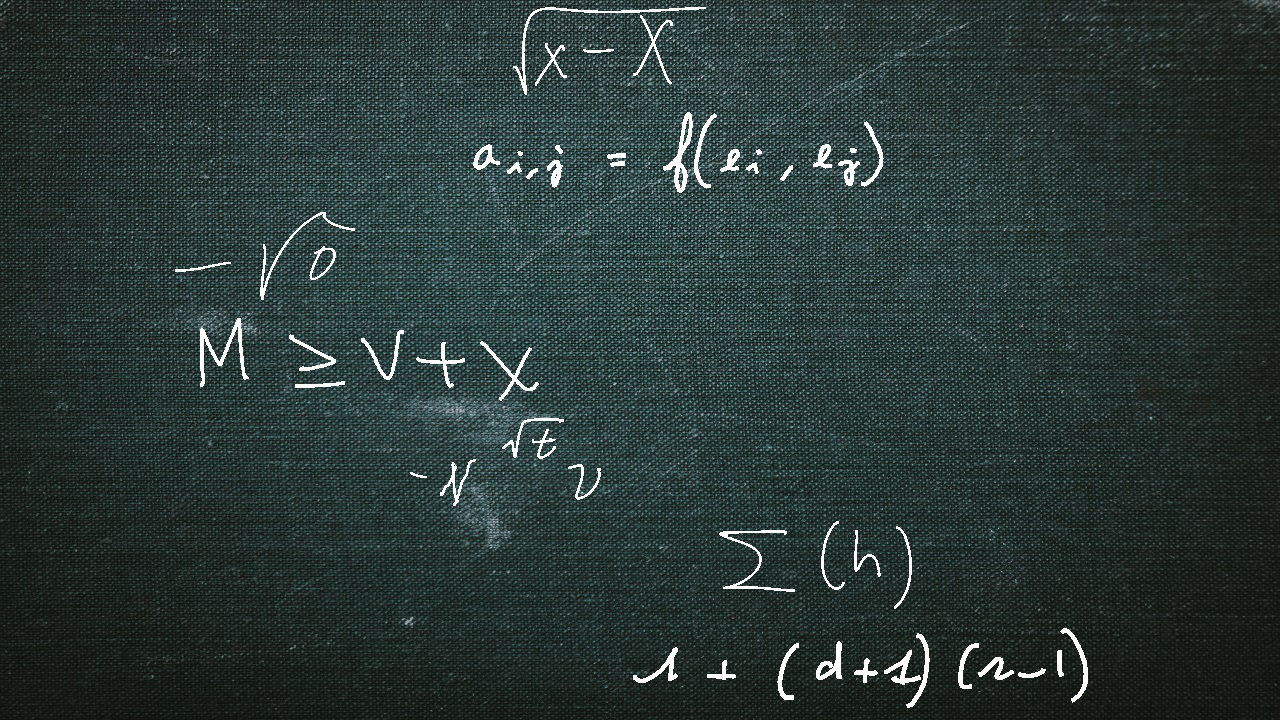 √(x − X)
a_{i,j} = f(e_i, e_j)
−√0
M ≥ V + X
−N^{√t} ν
∑(h)
1 + (d+1)(r−1)